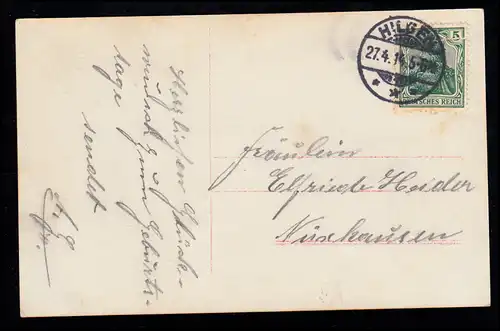 HILGEN
27.4.14.5-6N
5
DEUTSCHES REICH
Herzlichen Glück-
wunsch zum Geburts-
tage
sendet
Fräulein
Elfriede Heider